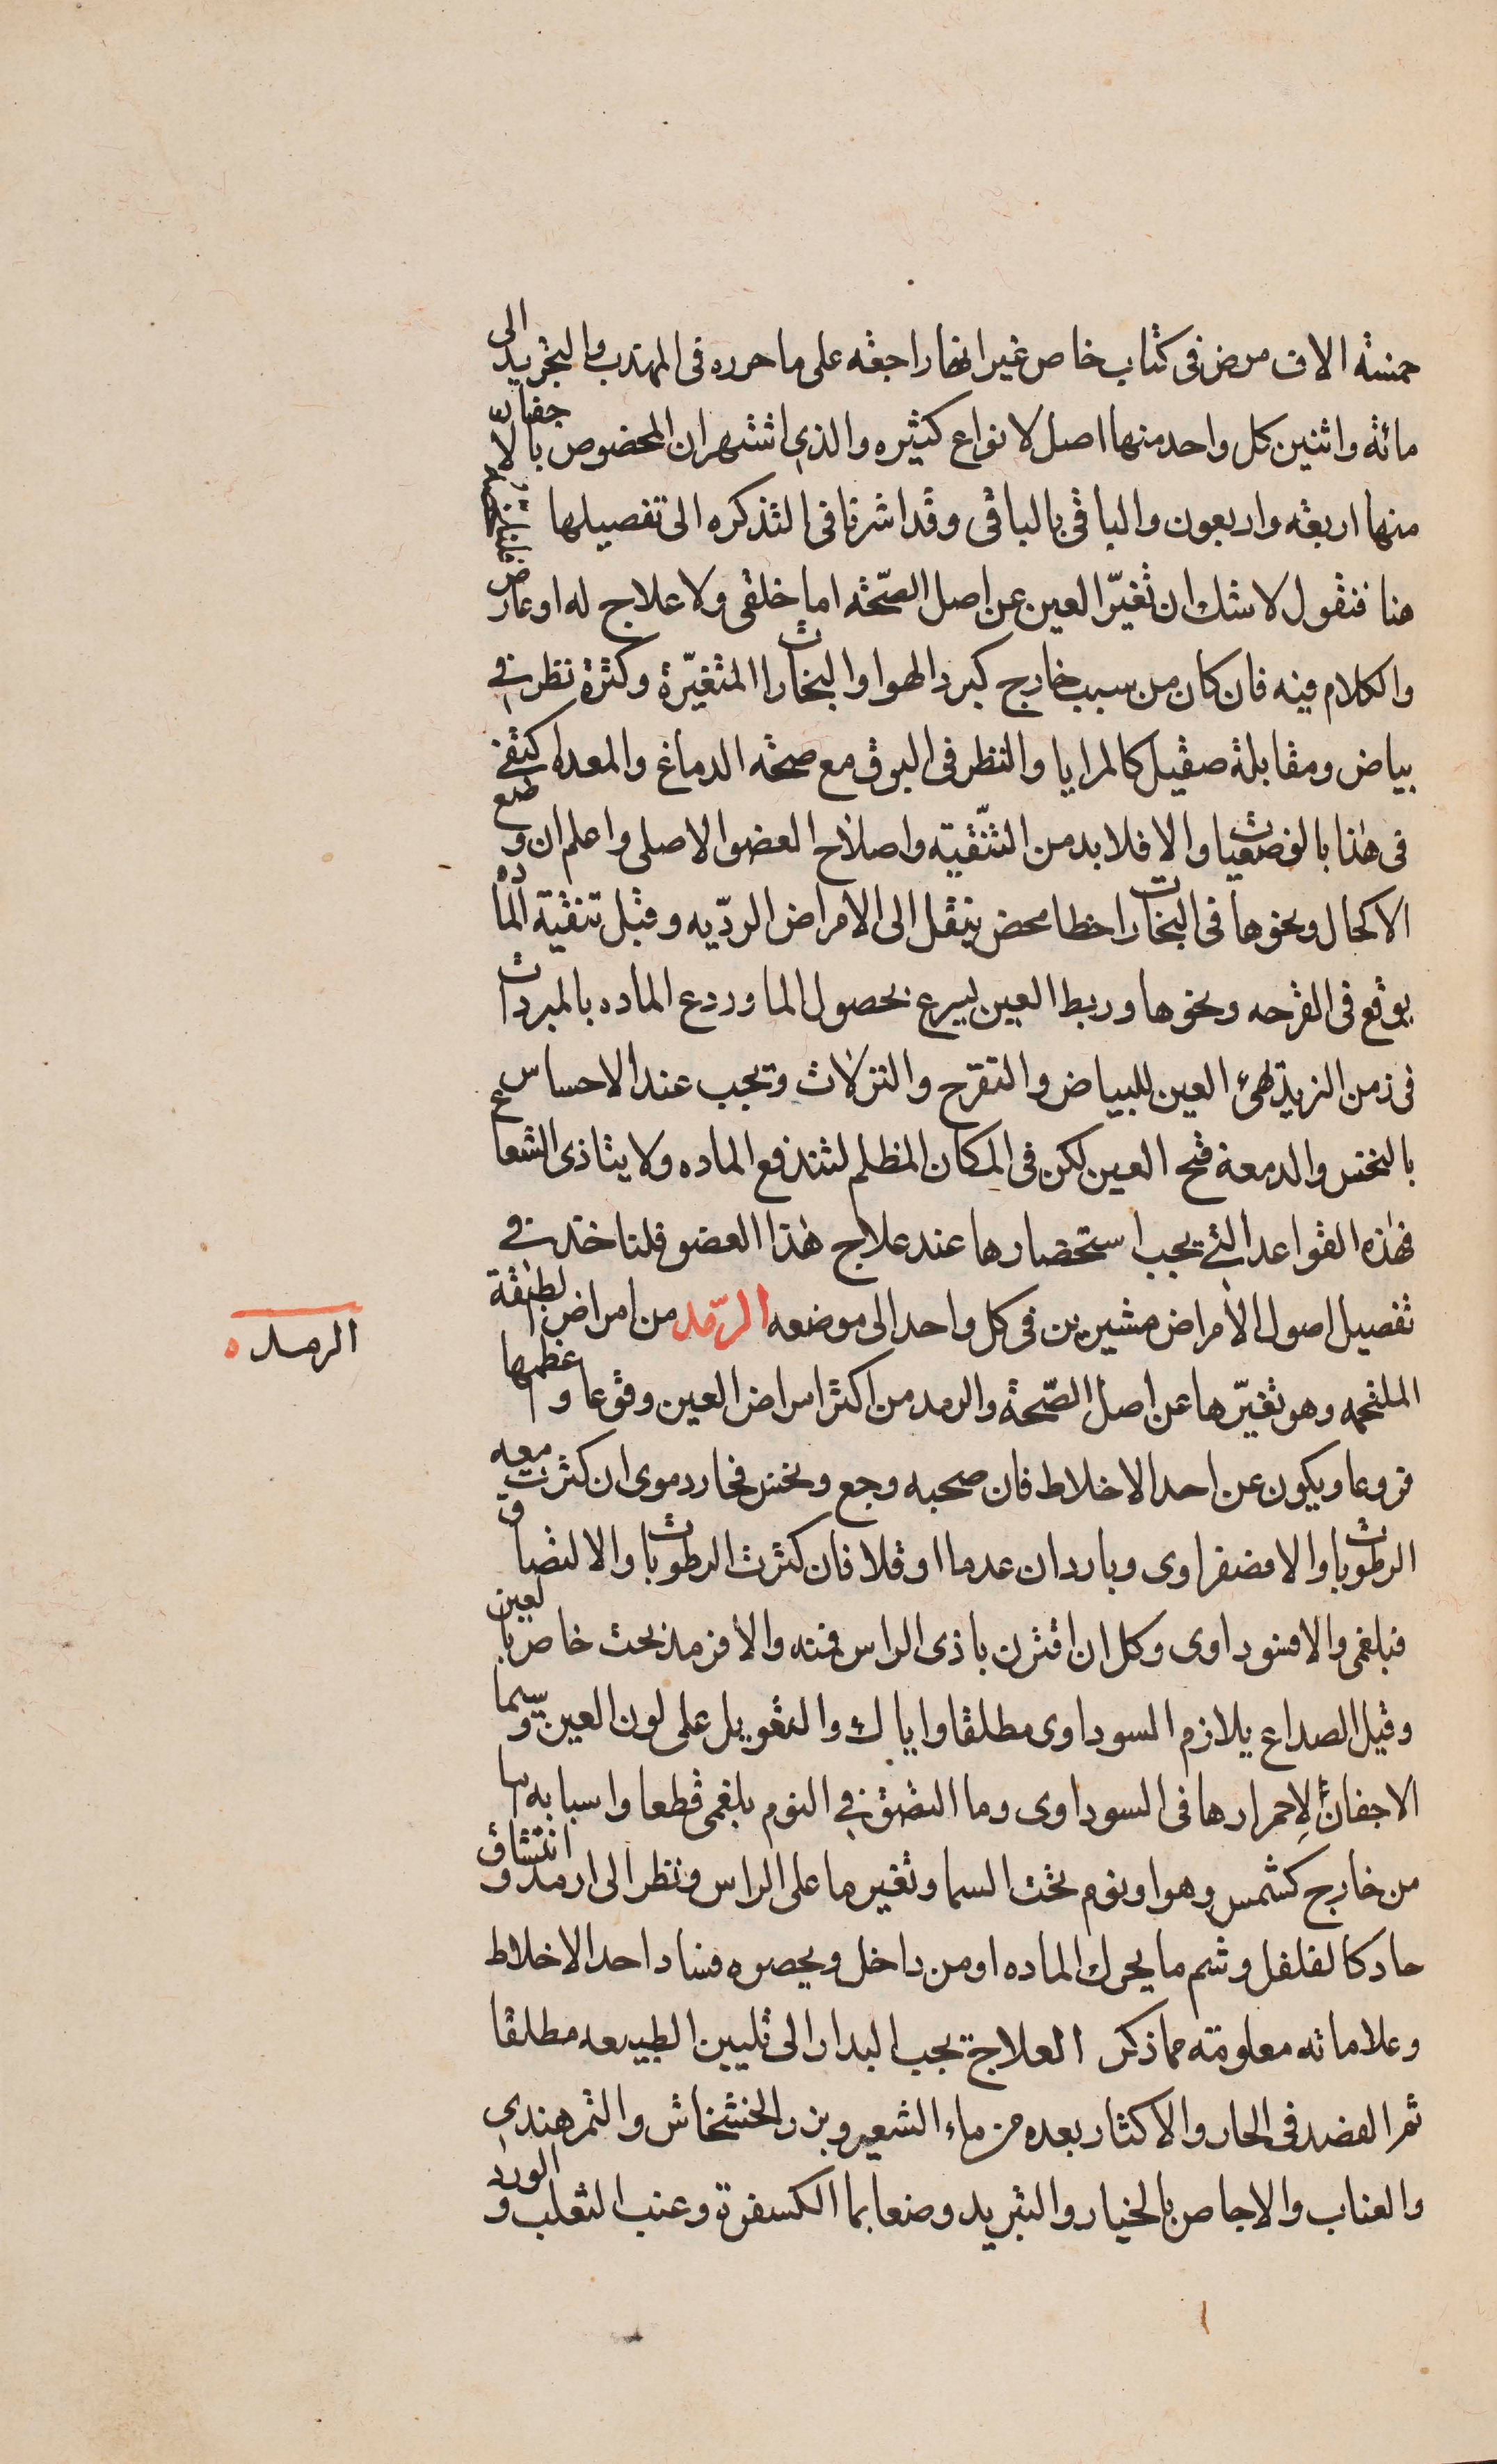 خمسة الاف مرض فى كتاب خاص غير انها راجعه على ما حرره فى المهذب والتجريد الى
مائة واثنين كل واحد منها اصل لانواع كثيره والذي اشتهر ان المخصوص بالاجفان
منها اربعه واربعون والباقى بالباقى وقد اشرنا فى التذكره الى تفصيلها
هنا فنقول لا شك ان تغيّر العين عن اصل الصّحّه اما خلقى ولا علاج له او عارض
والكلام فيه فان كان من سبب خارج كبرد الهوا والبخارات المتغيّرة وكثرة نظر في
بياض ومقابلة صقيل كالمرايا والنظر فى البرق مع صحة الدماغ والمعده اكتفى
فى هٰذا بالوضعيات والا فلا بد من التّنقيه واصلاح العضو الاصلى واعلم ان وضع
الاكحال ونحوها فى البخارات خطا محض ينقل الى الامراض الردّيه وقبل تنقية المادة
يوقع فى القرحه ونحوها وربط العين يسرع بحصول الما وردع الماده بالمبردات
فى زمن التزيد تهئ العين للبياض والتقرح والنزلات ويجب عند الاحساس
بالنخس والدمعة فتح العين لكن فى المكان المظلم لتندفع الماده ولا يتاذى الشعاع
فهٰذه القواعد التي يجب استحضارها عند علاج هٰذا العضو فلناخذ في
تفصيل اصول الأمراض مشيرين فى كل واحد الى موضعه الرّمد من امراض الطبقة
الرمد
الملتحمه وهو تغيّرها عن اصل الصّحة والرمد من اكثر امراض العين وقوعا واعظمها
فروعا ويكون عن احد الاخلاط فان صحبه وجع ونخس فحار دموى ان كثرت معه
الرطوبات والا فصفراوى وبارد ان عدما او قلا فان كثرت الرطوبات والالتصاق
فبلغمى والا فسوداوى وكل ان اقترن باذى الراس فمنه والا فرمد بحت خاص بالعين
وقيل الصداع يلازم السوداوى مطلقا واياك والتعويل على لون العين وسيما
الاجفان لإحمرارها فى السوداوى وما التصق في النوم بلغمى قطعا واسبابه اما
من خارج كشمس وهوا ونوم تحت السما وتغير ما على الراس ونظر الى ارمد وانتشاق
حاد كالفلفل وشم ما يحرك الماده او من داخل ويحصره فساد احد الاخلاط
وعلاماته معلومته مما ذكر العلاج يجب البدار الى تليين الطبيعه مطلقا
ثم الفصد فى الحار والاكثار بعده من ماء الشعير وبزر الخشخاش والتمر هندي
والعناب والاجاص بالخيار والتبريد وضعا بما الكسفرة وعنب الثعلب والورد